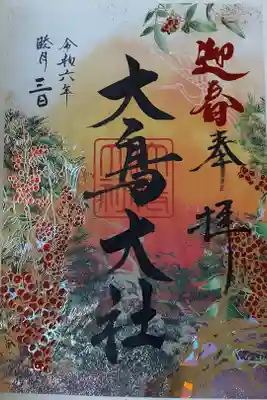 迎春奉拝
大鳥大社
令和六年
睦月三日